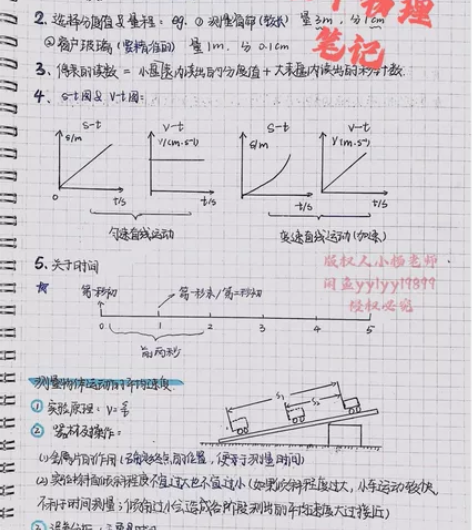 物理
笔记
2、选择分度值及量程：eg. ①测量窗帘(较长) 量3m，分1cm
②窗户玻璃(需精准的) 量1m，分0.1cm
3、停表的读数 = 小盘内读出的分度值 + 大盘内读出的秒数.
4、s-t图及v-t图：
s-t v-t s-t v-t
s/m v/(m·s⁻¹) s/m v/(m·s⁻¹)
0 t/s t/s t/s t/s
匀速直线运动 变速直线运动(加速)
5、关于时间
版权人小杨老师
闲鱼yylyy19899
侵权必究
第一秒初 第一秒末/第二秒初
0 1 2 3 4 5
前两秒
测量物体运动的平均速度
① 实验原理：v=s/t
s₁ s₂
② 器材及操作：
(1)金属片的作用(确定终点的位置，便于测量时间)
(2)实验斜面倾斜程度不宜过大也不宜过小(如果倾斜程度过大，小车运动较快，
不利于时间测量；倾角过小会造成各阶段测出的平均速度大过接近)
③